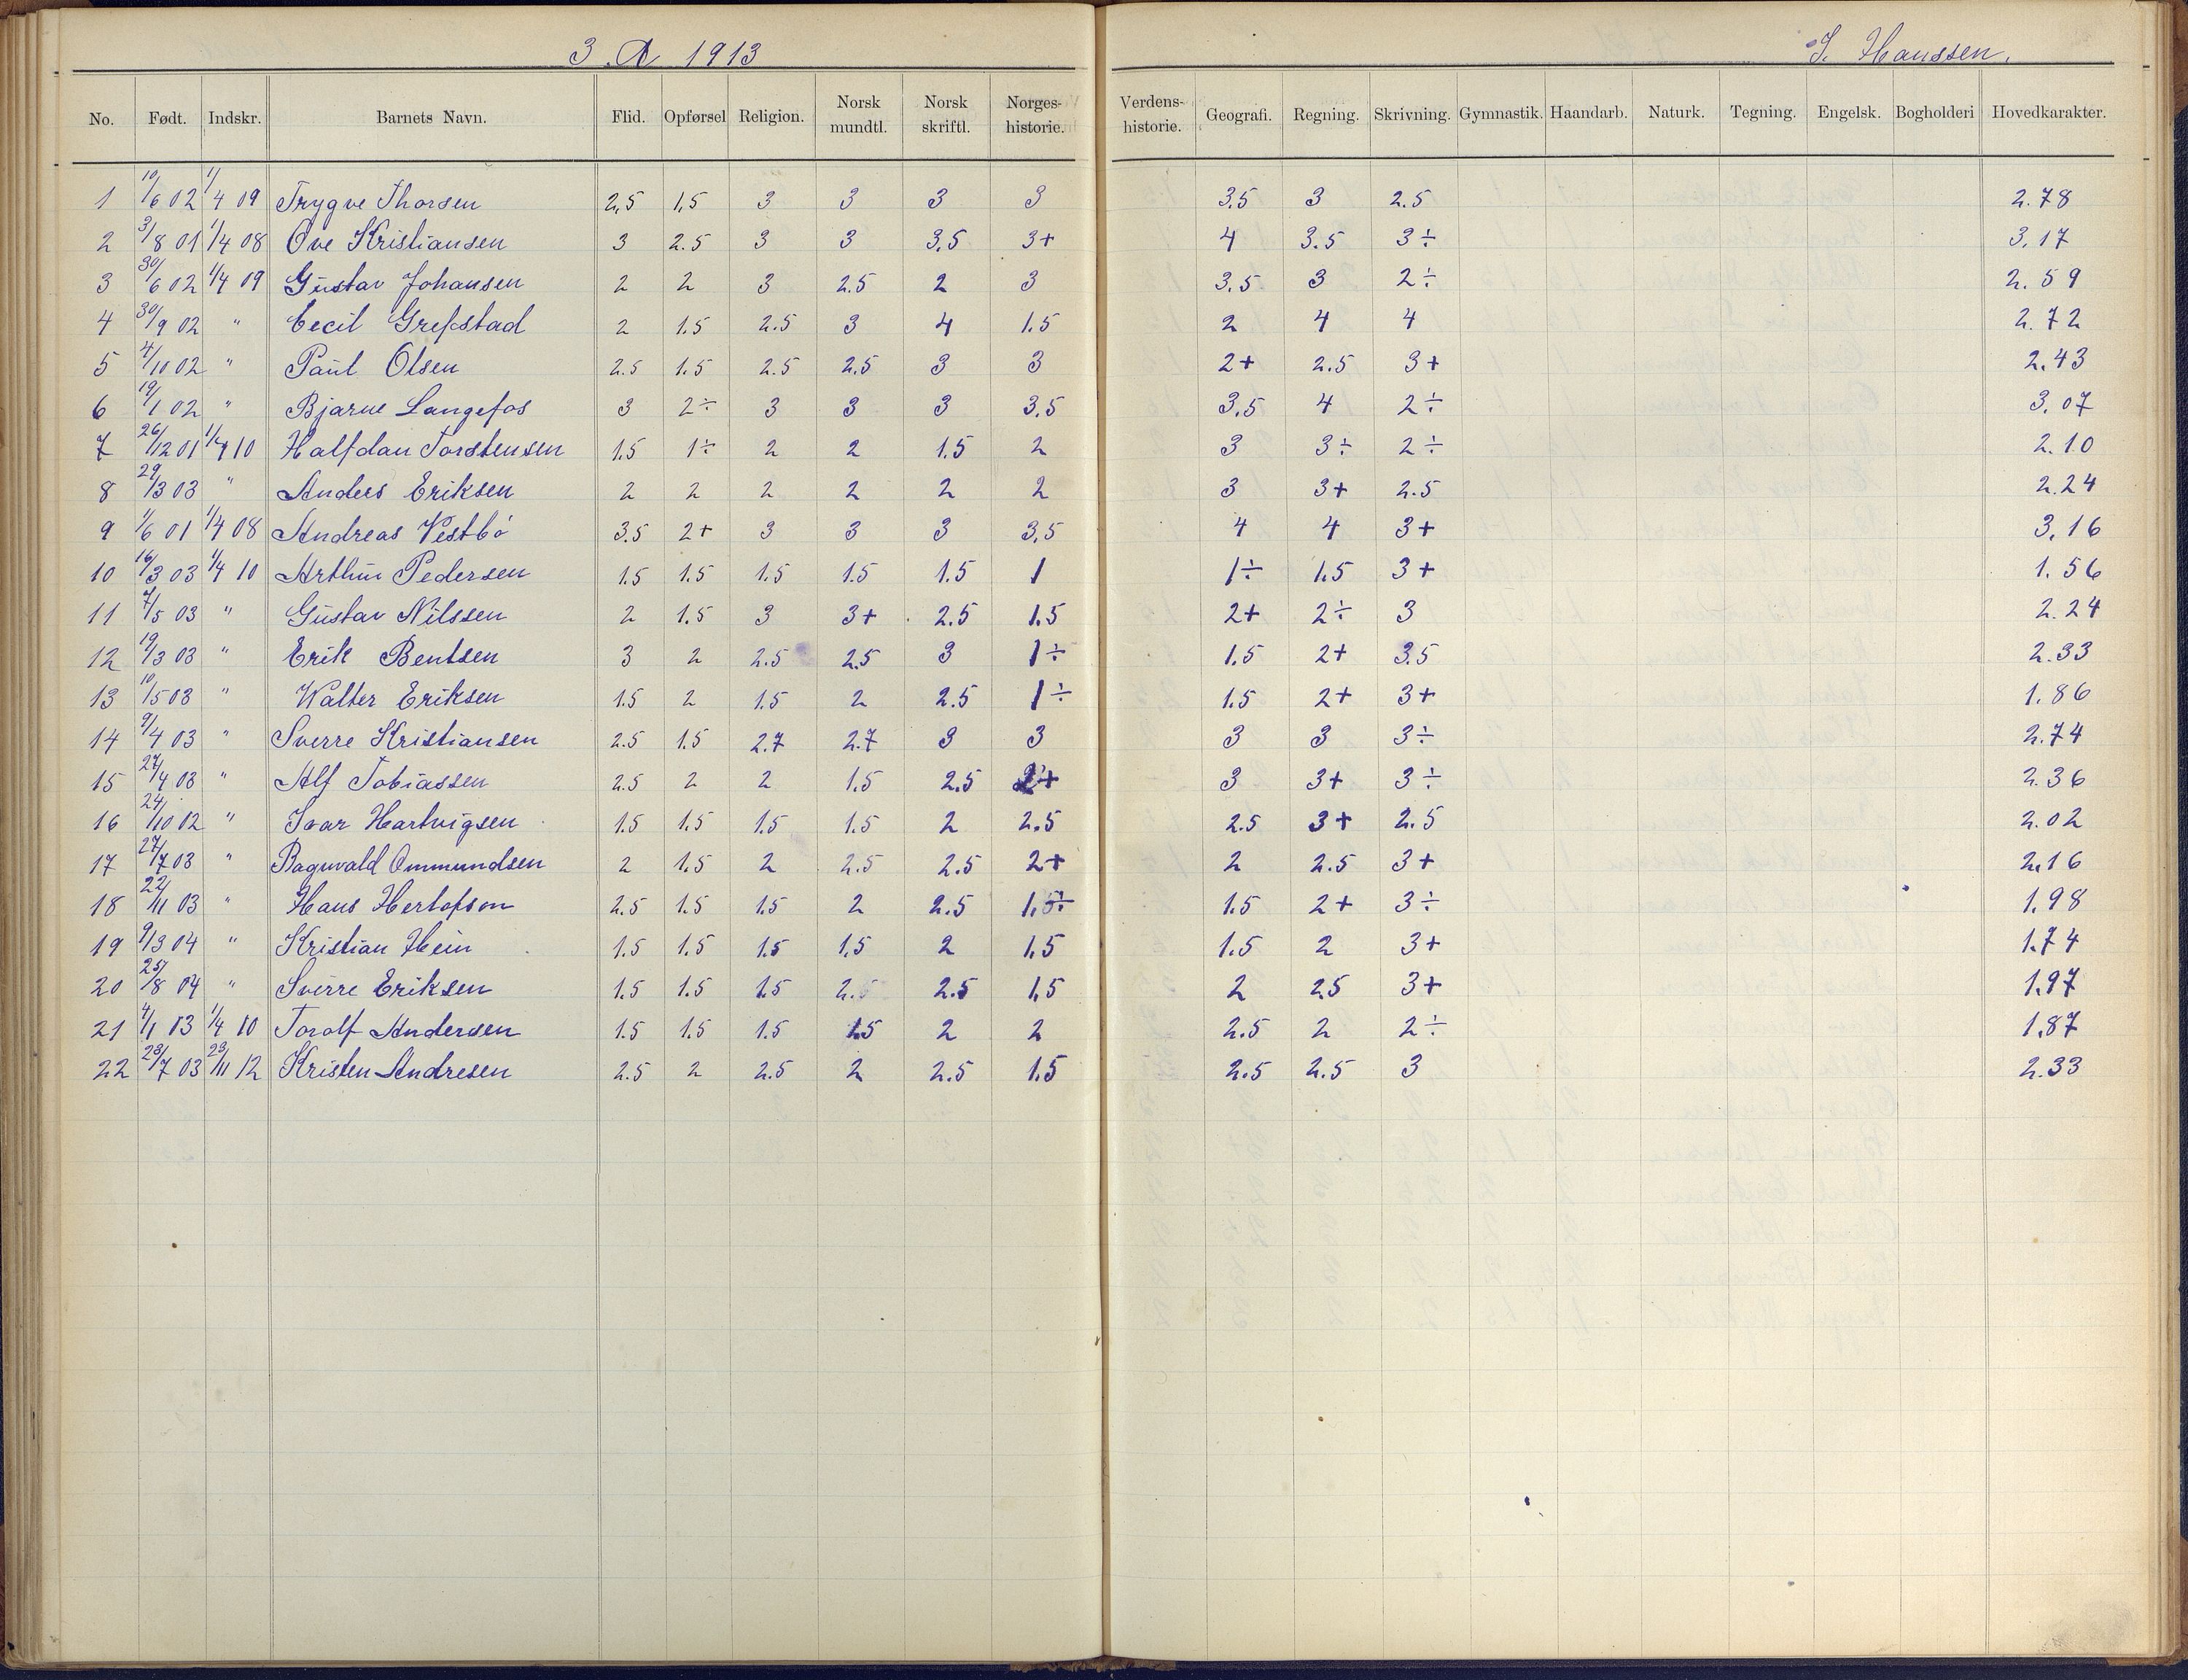 3. A 1913
J. Hanssen.
No. Født. Indskr. Barnets Navn. Flid. Opførsel Religion. Norsk mundtl. Norsk skriftl. Norges-historie. Verdens-historie. Geografi. Regning. Skrivning. Gymnastik. Haandarb. Naturk. Tegning. Engelsk. Bogholderi Hovedkarakter.
1 10/6 02 1/4 09 Trygve Thorsen 2,5 1,5 3 3 3 3 3,5 3 2.5 2.78
2 3/8 01 1/4 08 Ove Kristiansen 3 2.5 3 3 3,5 3+ 4 3.5 3÷ 3,17
3 30/6 02 1/4 09 Gustav Johansen 2 2 3 2.5 2 3 3.5 3 2÷ 2.59
4 30/9 02 " Cecil Grefstad 2 1.5 2.5 3 4 1.5 2 4 4 2.72
5 4/10 02 " Paul Olsen 2.5 1.5 2.5 2,5 3 3 2+ 2.5 3+ 2.43
6 19/1 02 " Bjarne Langefos 3 2÷ 3 3 3 3,5 3,5 4 2÷ 3,07
7 26/12 01 1/4 10 Halfdan Torstensen 1.5 1÷ 2 2 1.5 2 3 3÷ 2÷ 2.10
8 29/3 03 " Anders Eriksen 2 2 2 2 2 2 3 3+ 2.5 2.24
9 1/6 01 1/4 08 Andreas Vestbö 3.5 2+ 3 3 3 3,5 4 4 3+ 3,16
10 16/3 03 1/4 10 Arthur Pedersen 1.5 1.5 1.5 1.5 1.5 1 1÷ 1.5 3+ 1.56
11 7/5 03 " Gustav Nilssen 2 1.5 3 3+ 2.5 1.5 2+ 2÷ 3 2.24
12 19/3 03 " Erik Bentsen 3 2 2.5 2.5 3 1÷ 1.5 2+ 3.5 2.33
13 10/5 03 " Walter Eriksen 1.5 2 1.5 2 2.5 1÷ 1.5 2+ 3+ 1.86
14 9/4 03 " Sverre Kristiansen 2.5 1.5 2.7 2.7 3 3 3 3 3÷ 2.74
15 27/4 03 " Alf Tobiassen 2.5 2 2 1.5 2.5 2+ 3 3+ 3÷ 2.36
16 24/10 02 " Ivar Hartvigsen 1.5 1.5 1.5 1.5 2 2.5 2.5 3+ 2.5 2.02
17 27/7 03 " Ragnvald Ommundsen 2 1.5 2 2.5 2.5 2+ 2 2.5 3+ 2,16
18 22/11 03 " Hans Hertofson 2.5 1.5 1.5 2 2.5 1,5÷ 1.5 2+ 3÷ 1.98
19 9/3 04 " Kristian Hein 1.5 1.5 1.5 1.5 2 1,5 1.5 2 3+ 1.74
20 25/8 04 " Sverre Eriksen 1.5 1.5 1.5 2.5 2.5 1,5 2 2,5 3+ 1.97
21 4/1 13 1/4 10 Torolf Andersen 1.5 1.5 1.5 1.5 2 2 2.5 2 2÷ 1.87
22 23/7 03 23/11 12 Kristen Andresen 2.5 2 2.5 2 2.5 1.5 2.5 2.5 3 2.33